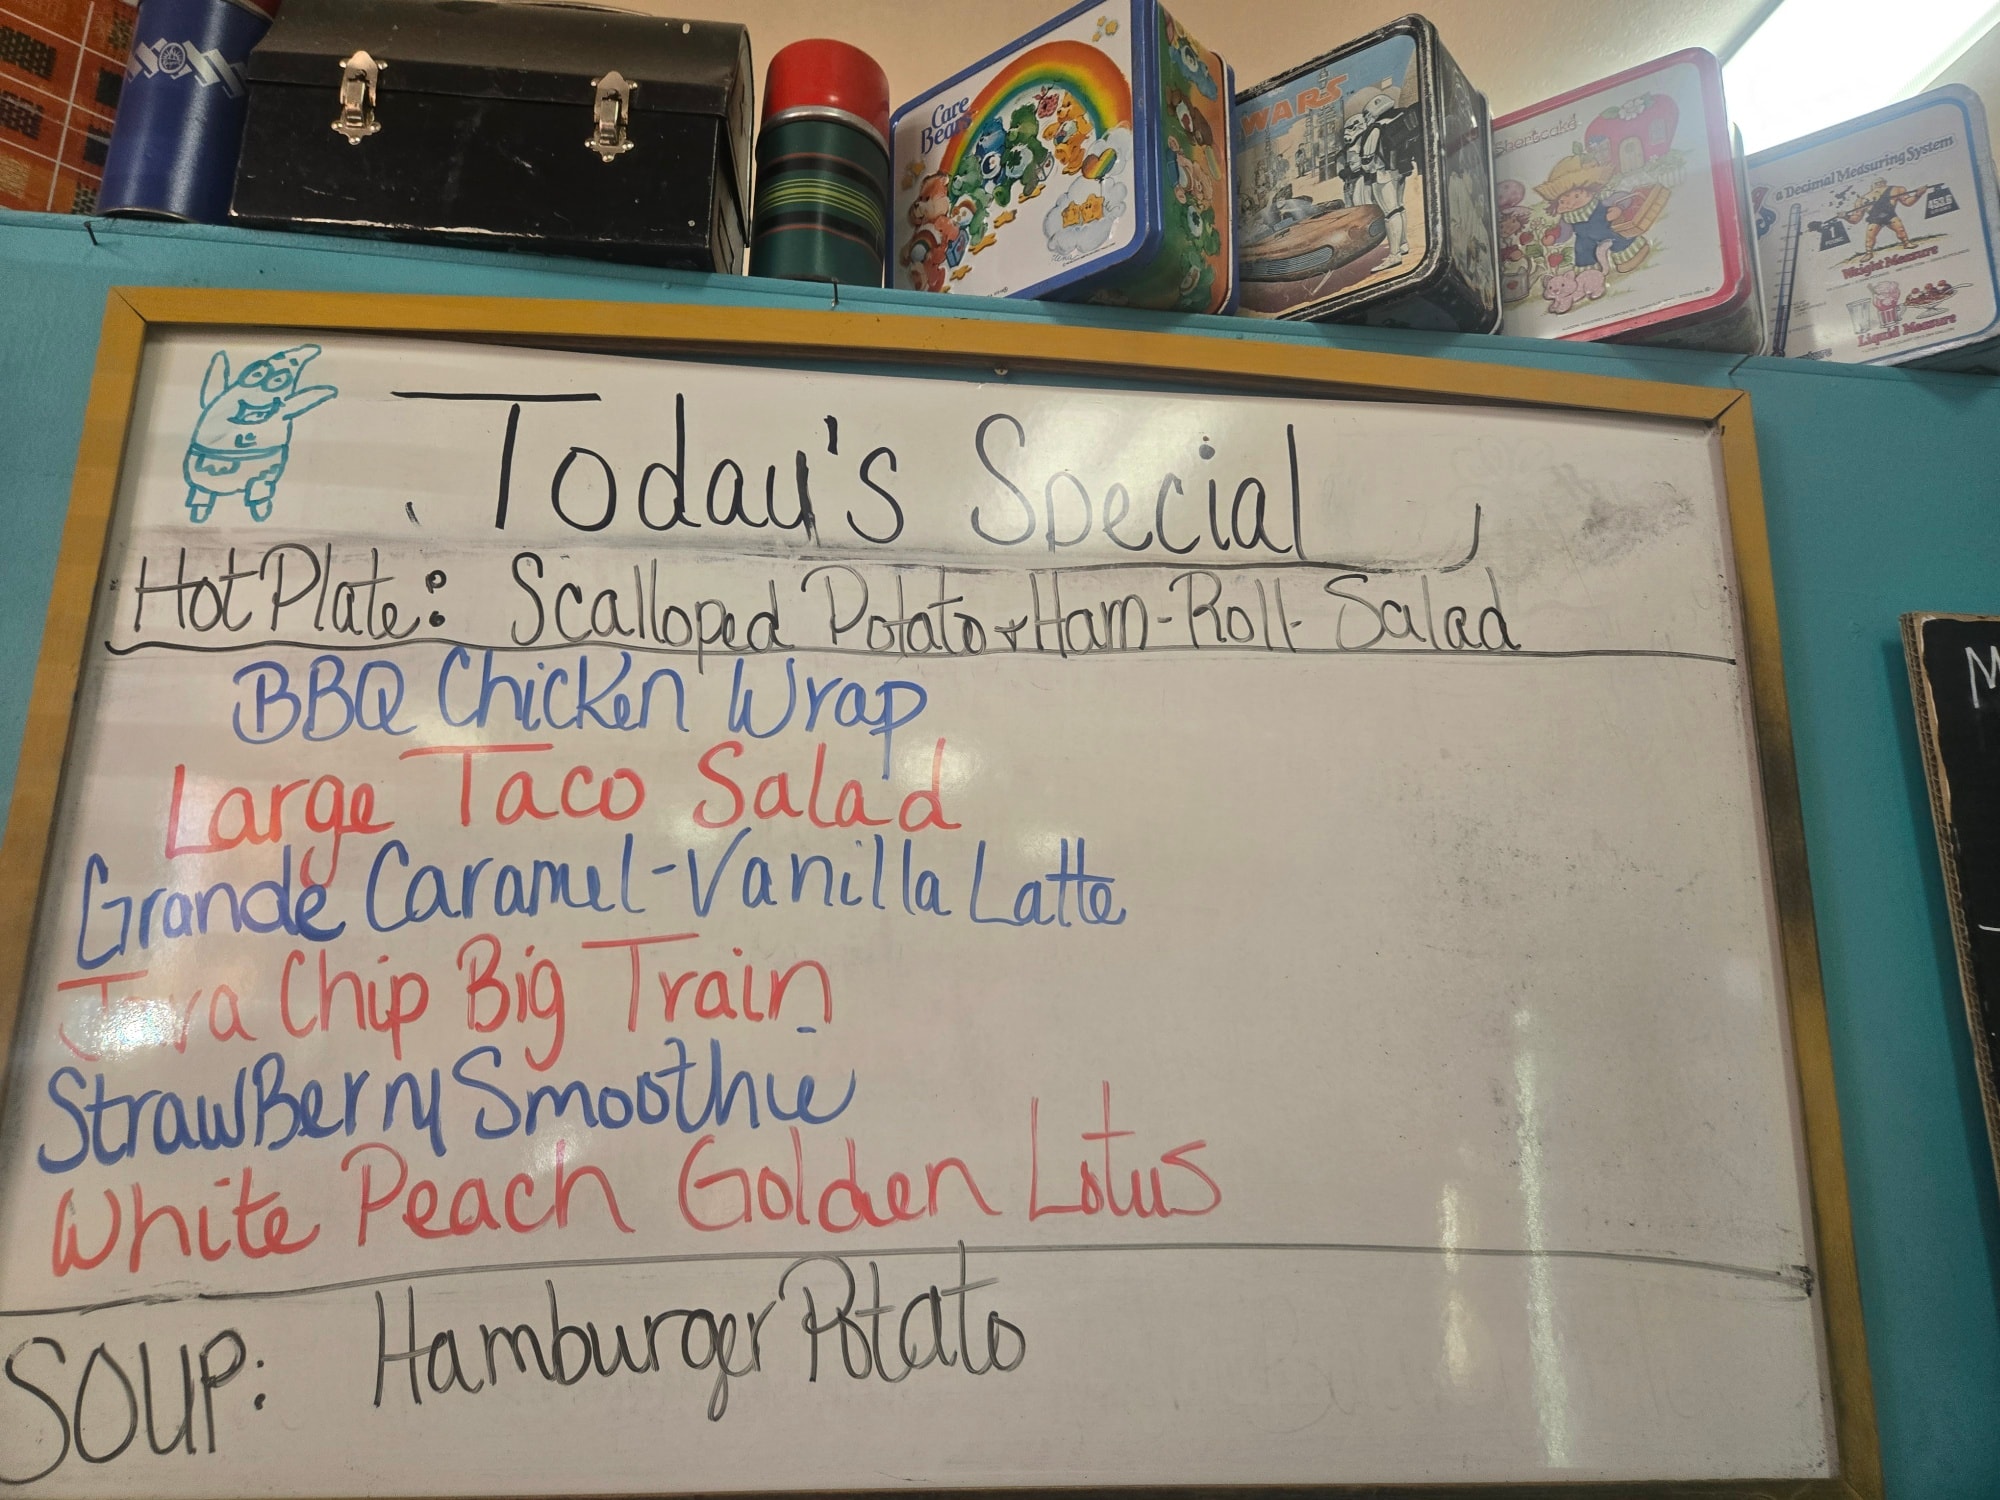 Care Bears
WARS
Shortcake
a Decimal Measuring System
453.6
1
Weight Measure
Liquid Measure
Today's Special
Hot Plate: Scalloped Potato + Ham - Roll - Salad
BBQ Chicken Wrap
Large Taco Salad
Grande Caramel-Vanilla Latte
Java Chip Big Train
StrawBerry Smoothie
White Peach Golden Lotus
SOUP: Hamburger Potato
M